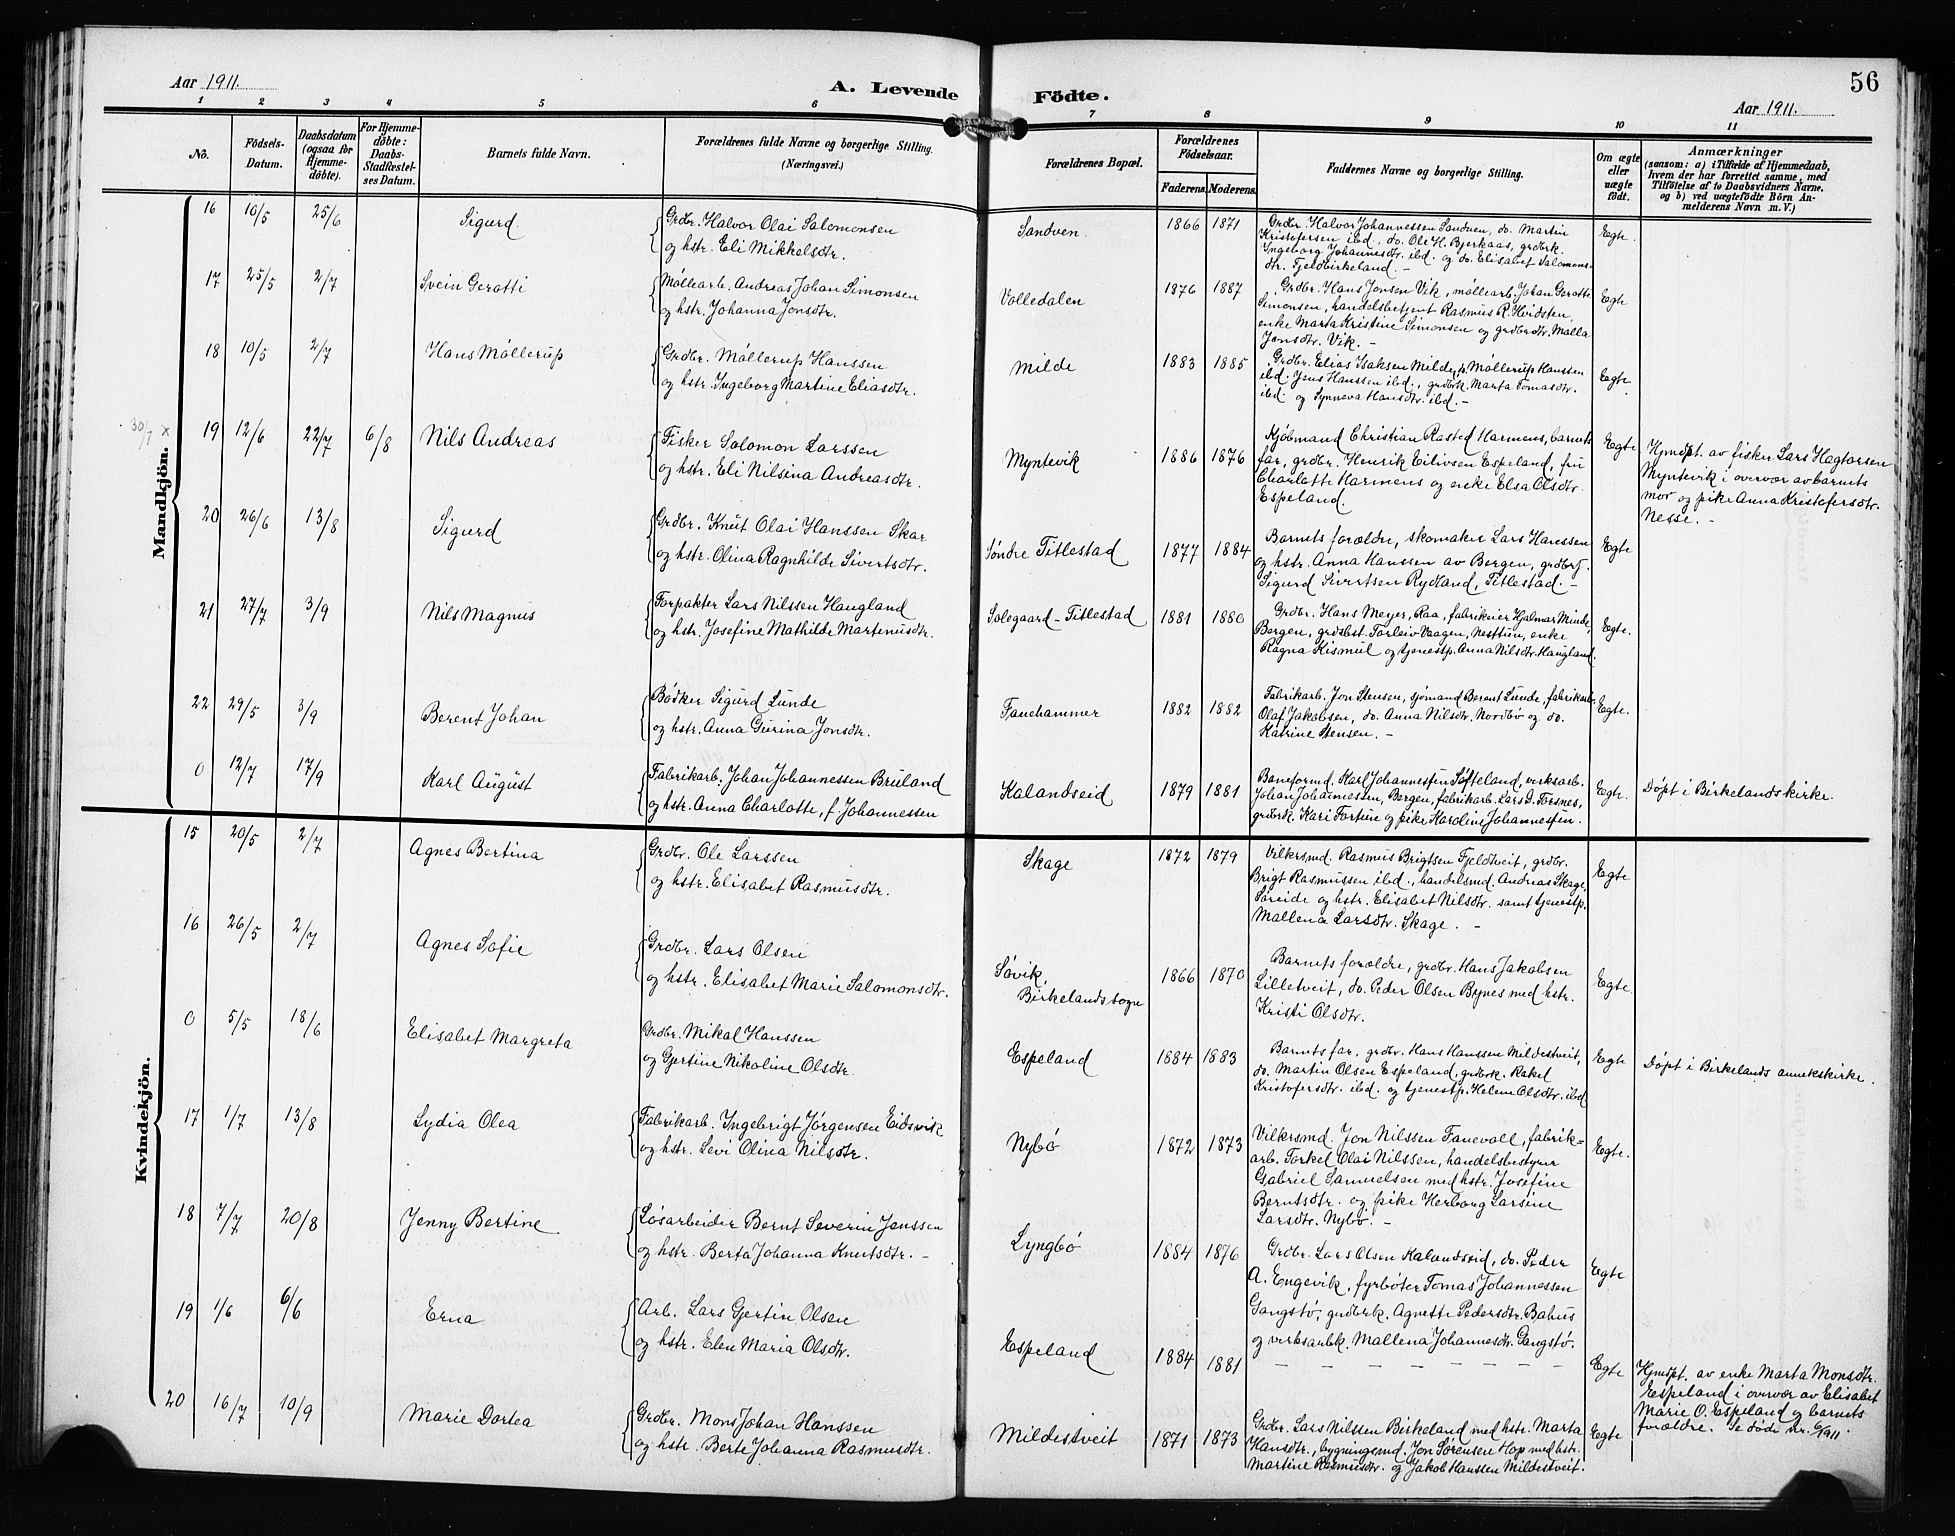 Aar 1911.
A. Levende Födte.
56
Aar 1911.
1 2 3 4 5 6 7 8 9 10 11
No.
Födsels-Datum.
Daabsdatum (ogsaa for Hjemme-döbte).
For Hjemme-döbte: Daabs-Stadfæstel-ses Datum.
Barnets fulde Navn.
Forældrenes fulde Navne og borgerlige Stilling. (Næringsvei.)
Forældrenes Bopæl.
Forældrenes Födselsaar.
Faderens. Moderens.
Faddernes Navne og borgerlige Stilling.
Om ægte eller uægte födt.
Anmærkninger
(saasom: a) i Tilfælde af Hjemmedaab,
hvem der har forrettet samme, med
Tilföielse af to Daabsvidners Navne,
og b) ved uægtefödte Börn An-
melderens Navn m. V.)
Mandkjön.
16 10/5 25/6 Sigurd.
Grdbr. Halvor Olai Salomonsen
og hstr. Eli Mikkelsdtr.
Sandven. 1866 1871
Grdbr. Halvor Johannessen Sandven, do. Martin
Kristofersen ibd. do. Ole H. Bjerkaas, grdbrk.
Ingeborg Johannesdtr. ibd. og do. Elisabet Salomons-
dtr. Fjeldbirkeland. –
Egte.
17 25/5 2/7 Svein Gerotti
Møllearb. Andreas Johan Simonsen
og hstr. Johanna Jonsdtr.
Volledalen 1876 1887
Grdbr. Hans Jonsen Vik, møllearb. Johan Gerotte
Simonsen, handelsbetjent Rasmus R. Hvidsten,
enke Marta Kristine Simonsen og grdbrdtr. Malla
Jonsdtr. Vik. –
Egte
18 10/5 2/7 Hans Møllerup
Grdbr. Møllerup Hanssen
og hstr. Ingeborg Martine Eliasdtr.
Milde 1883 1885
Grdbr. Elias Isaksen Milde, Møllerup Hanssen
ibd. Jens Hanssen ibd., grdbrk. Marta Tomasdtr.
ibd. og Synneva Hansdtr. ibd. –
Egte.
30/7 x
19 12/6 22/7 6/8 Nils Andreas
Fisker Salomon Larssen
og hstr. Eli Nilsina Andreasdtr.
Myntevik 1886 1876
Kjøbmand Christian Rasted Harmens, barnets
far, grdbr. Henrik Eilivsen Espeland, fru
Charlotte Harmens og enke Elsa Olsdtr.
Espeland.
Egte
Hjmdpt. av fisker Lars Hagtorsen
Myntevik i overvær av barnets
mor og pike Anna Kristofersdtr.
Nesse. –
20 26/6 13/8 Sigurd
Grdbr. Knut Olai Hanssen Skar
og hstr. Olina Ragnhilde Sivertsdtr.
Søndre Titlestad 1877 1884
Barnets forældre, skomaker Lars Hanssen
og hstr. Anna Hanssen av Bergen, grdbrs.
Sigurd Sivertsen Rydland, Titlestad. –
Egte
21 27/7 3/9 Nils Magnus
Forpakter Lars Nilssen Haugland
og hstr. Josefine Mathilde Martenusdtr.
Solegaard – Titlestad 1881 1880
Grdbr. Hans Meyer, Raa, fabrikeier Hjalmar Minde,
Bergen, grdbst. Torleiv Vaagen, Nesttun, enke
Ragna Kismul og tjenestp. Anna Nilsdtr. Haugland.
Egte.
22 29/5 3/9 Berent Johan
Bødker Sigurd Lunde
og hstr. Anna Gurina Jonsdtr.
Fanehammer 1882 1882
Fabrikarb. Jon Stensen, sjømand Berent Lunde, fabrikarb.
Olaf Jakobsen, do. Anna Nilsdtr. Nordbø og do.
Katrine Stensen. –
Egte.
0 12/7 17/9 Karl August
Fabrikarb. Johan Johannessen Bruland
og hstr. Anna Charlotte, f. Johannessen
Kalandseid 1879 1881
Baneformd. Karl Johannessen Søfteland, virksarb.
Johan Johannessen, Bergen, fabrikarb. Lars D. Torsnes,
grdbrk. Kari Fortun og pike Karoline Johannessen.
Egte.
Døpt i Birkelands kirke.
Kvindekjön.
15 20/5 2/7 Agnes Bertina
Grdbr. Ole Larssen
og hstr. Elisabet Rasmusdtr.
Skage 1872 1879
Vilkersmd. Rasmus Brigtsen Fjeldtveit, grdbr.
Brigt Rasmussen ibd., handelsmd. Andreas Skage,
Søreide og hstr. Elisabet Nilsdtr. samt tjenestp.
Mallena Larsdtr. Skage. –
Egte
16 26/5 2/7 Agnes Sofie
Grdbr. Lars Olsen
og hstr. Elisabet Marie Salomonsdtr.
Søvik, Birkelands sogn 1866 1870
Barnets forældre, grdbr. Hans Jakobsen
Lilletveit, do. Peder Olsen Bynes med hstr.
Kristi Olsdtr.
Egte.
0 5/5 18/6 Elisabet Margreta
Grdbr. Mikal Hanssen
og Gertine Nikoline Olsdtr
Espeland 1884 1883
Barnets far, grdbr. Hans Hanssen Mildestveit,
do. Martin Olsen Espeland, grdbrk. Rakel
Kristofersdtr. ibd. og tjenestp. Helene Olsdtr. ibd
Egte
Døpt i Birkelands annekskirke.
17 1/7 13/8 Lydia Olea
Fabrikarb. Ingebrigt Jørgensen Eidsvik
og hstr. Levi Olina Nilsdtr.
Nybø 1872 1873
Vilkersmd. Jon Nilssen Fanevoll, fabrik=
arb. Torkel Olai Nilssen, handelsbestyrer
Gabriel Samuelsen med hstr. Josefine
Berntsdtr. og pike Herborg Larsine
Larsdtr. Nybø. –
Egte.
18 7/7 20/8 Jenny Bertine
Løsarbeider Bernt Severin Jenssen
og hstr. Berta Johanna Knutsdtr. –
Lyngbø 1884 1876
Grdbr. Lars Olsen Kalandseid, do. Peder
A. Engevik, fyrbøter Tomas Johannessen
Gangstø, grdbrk. Agnette Pedersdtr. Bahus
og virksarbk. Mallena Johannesdtr. Gangstø.
Egte
19 1/6 6/6 Erna
Arb. Lars Gertin Olsen
og hstr. Elen Maria Olsdtr.
Espeland 1884 1881
– – – – – – – –
Egte
Hjmdpt. av enke Marta Monsdtr.
Espeland i overvær av Elisabet
Marie O. Espeland og barnets
forældre. Se døde nr. 6/1911.
20 16/7 10/9 Marie Dortea
Grdbr. Mons Johan Hanssen
og hstr. Berte Johanna Rasmusdtr.
Mildestveit 1871 1873
Grdbr. Lars Nilssen Birkeland med hstr. Marta
Hansdtr., bygningsmd. Jon Sørensen Hop med hstr.
Martine Rasmusdtr. og Jakob Hanssen Mildestveit.
Egte